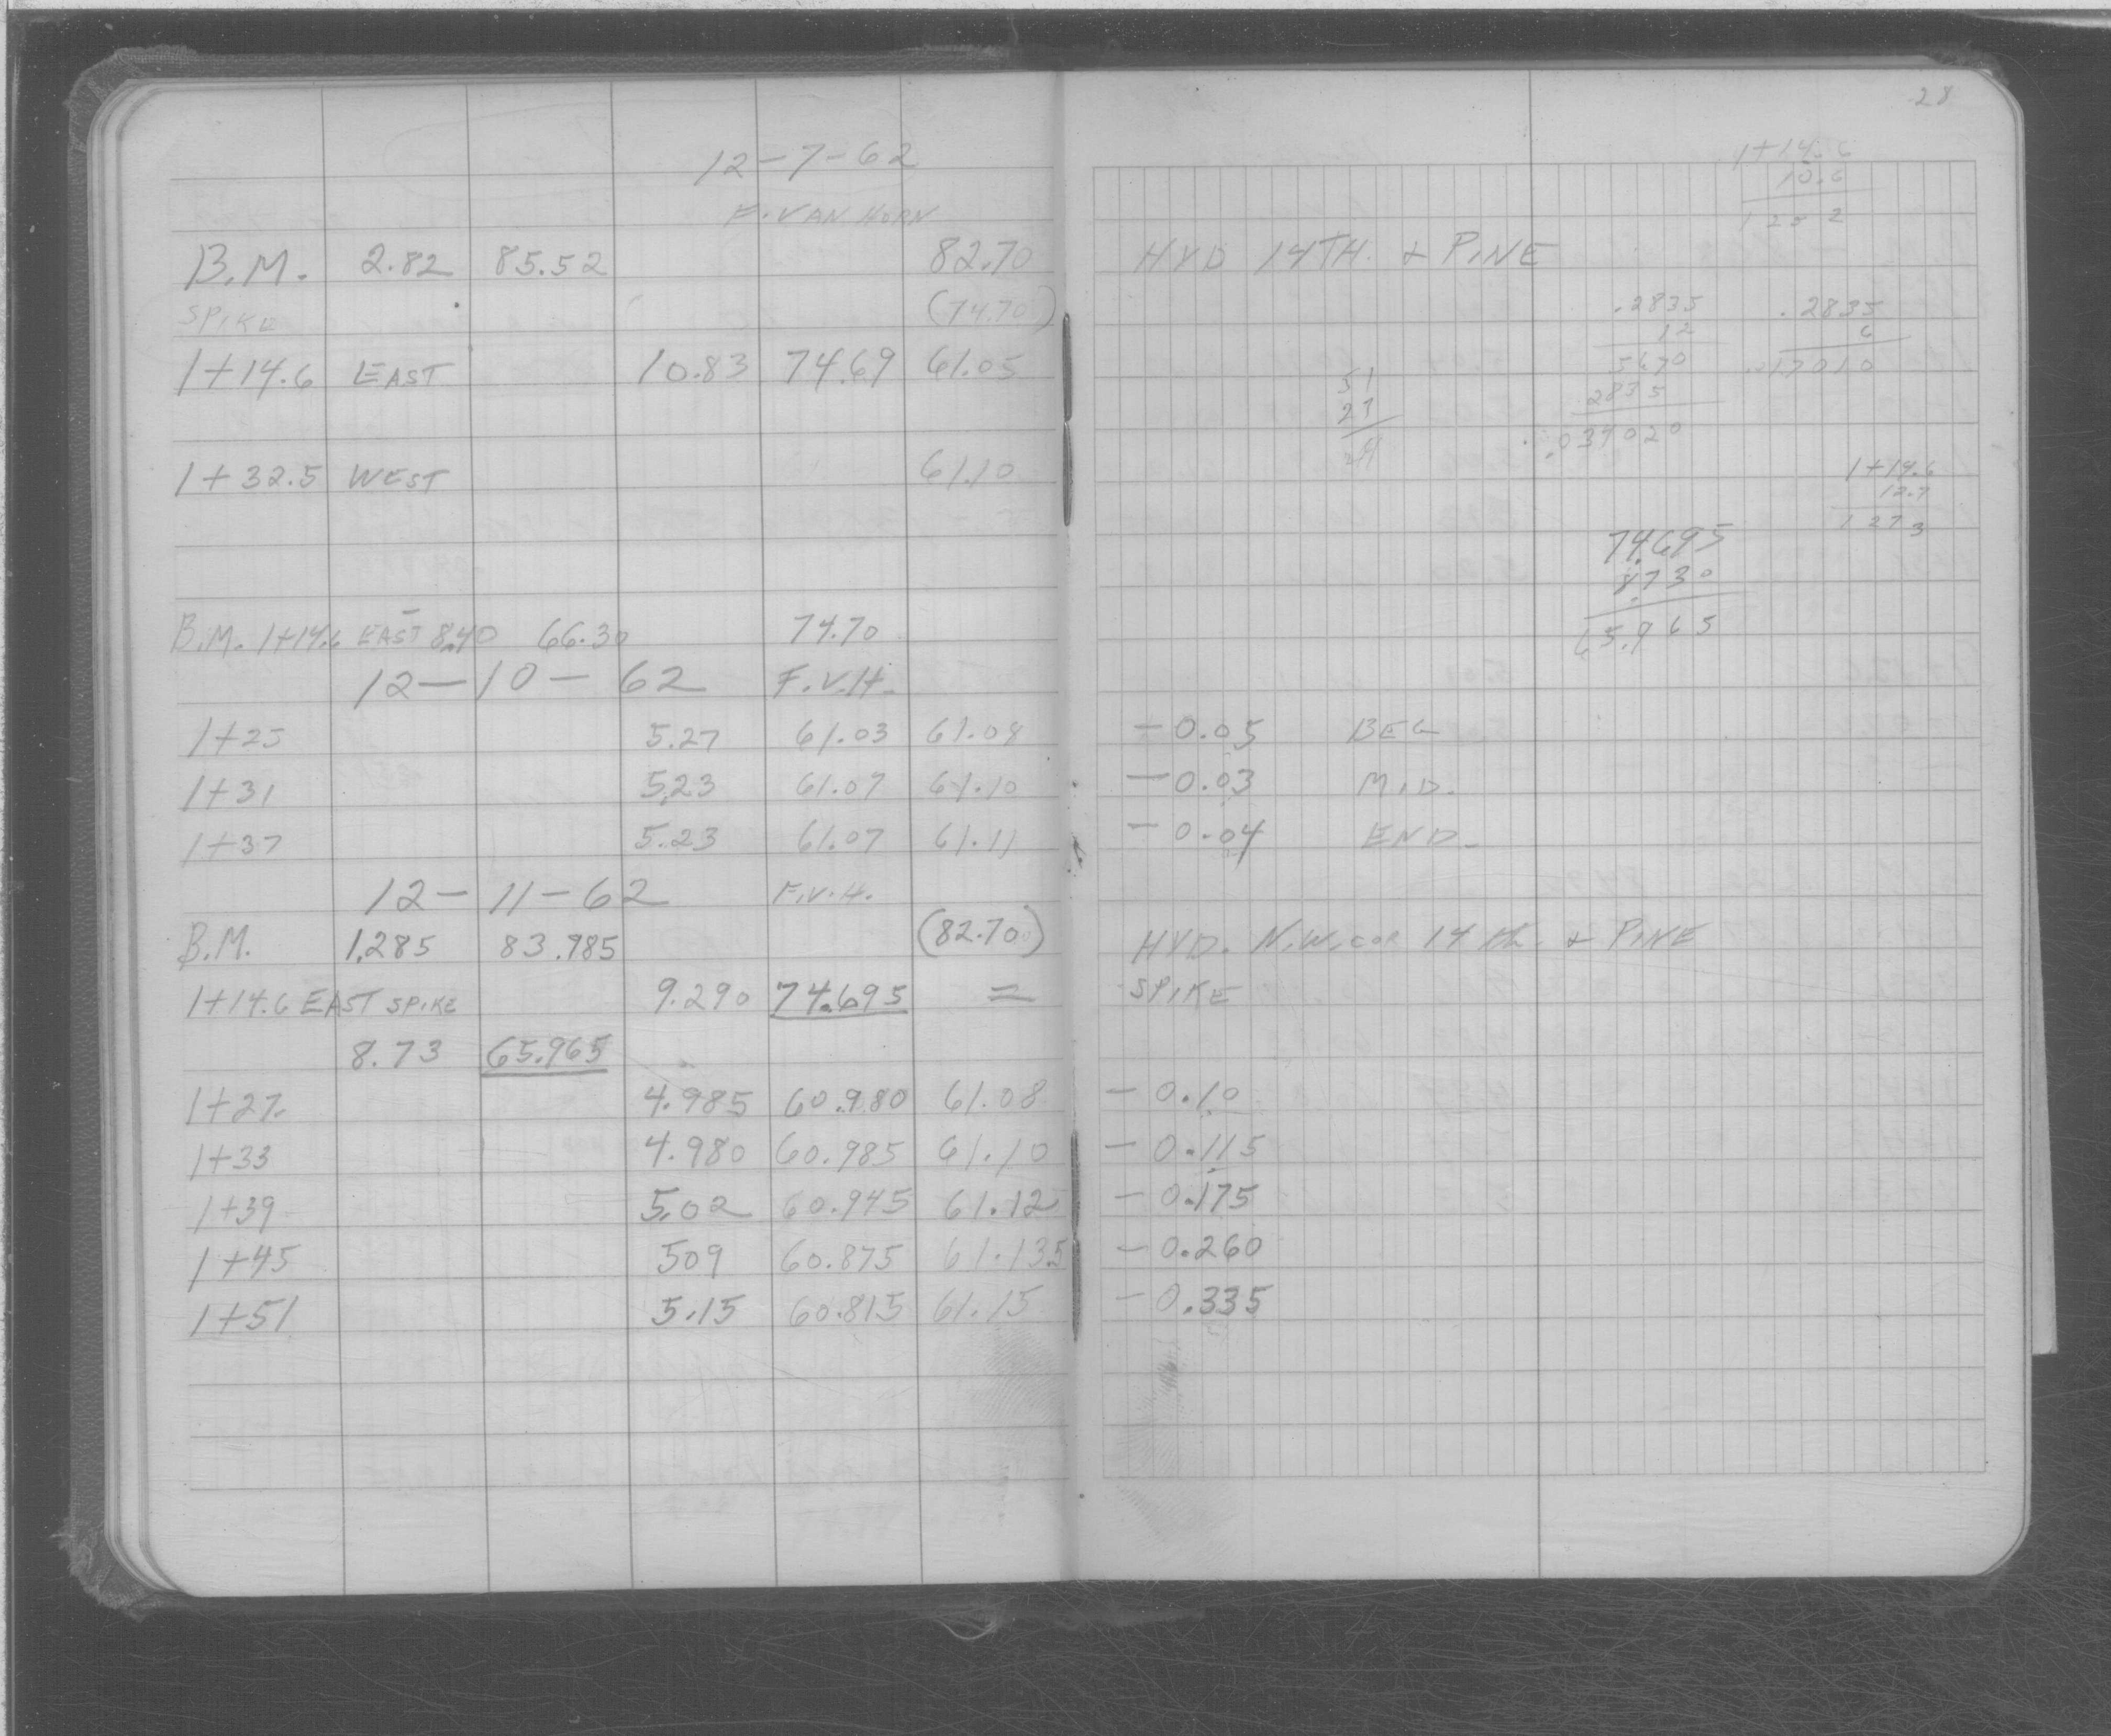 28
12-7-62
F. VAN HORN
B.M. 2.82 85.52 82.70 HYD 14TH. & PINE
SPIKE (74.70)
1+14.6 EAST 10.83 74.69 61.05
1+32.5 WEST 61.10
B.M. 1+14.6 EAST 8.40 66.30 74.70
12-10-62 F.V.H.
1+25 5.27 61.03 61.08 -0.05 BEG
1+31 5.23 61.07 61.10 -0.03 MID.
1+37 5.23 61.07 61.11 -0.04 END.
12-11-62 F.V.H.
B.M. 1.285 83.985 (82.70) HYD. N.W. COR 14th. & PINE
1+14.6 EAST SPIKE 9.290 74.695 = SPIKE
8.73 65.965
1+27. 4.985 60.980 61.08 -0.10
1+33 4.980 60.985 61.10 -0.115
1+39 5.02 60.945 61.12 -0.175
1+45 509 60.875 61.135 -0.260
1+51 5.15 60.815 61.15 -0.335
1+14.6
10.6
125 2
.2835
12
5670
2835
.034020
.2835
6
.17010
1+14.6
12.7
127 3
74.695
8.730
65.965